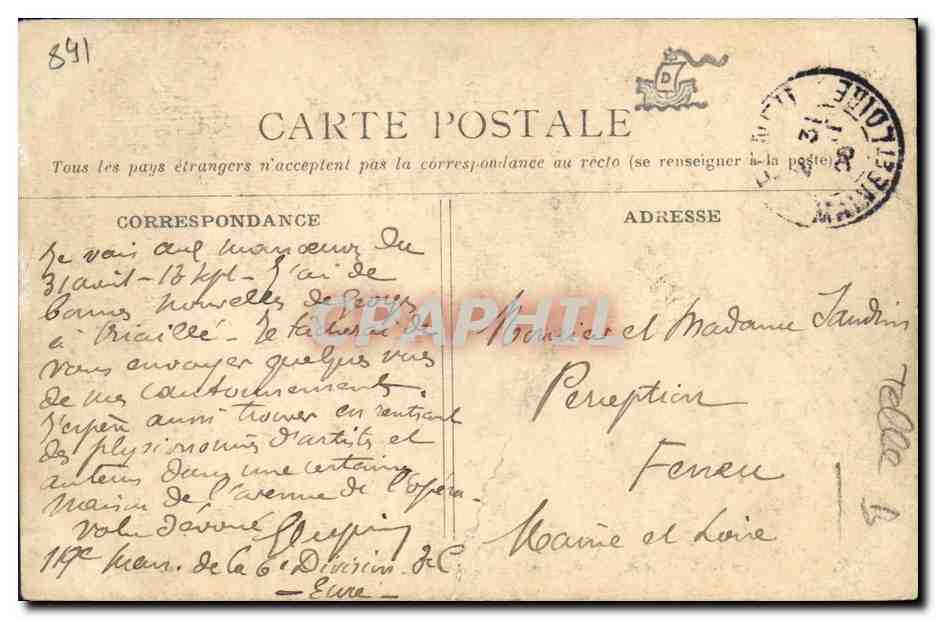 891
D
CARTE POSTALE
Tous les pays étrangers n'acceptent pas la correspondance au recto (se renseigner à la poste)
CORRESPONDANCE
Je vais aux manœuvres du
31 août - 13 Sept - J'ai de
bonnes nouvelles de Georges
à Vriaillé - Je tâcherai de
vous envoyer quelques vues
de mes cantonnements
J'espère aussi trouver en rentrant
des physionomies d'artistes et
auteurs dans une certaine
maison de l'avenue de l'opéra -
Votre dévoué
117e Man. de la 6e Division I.C.
- Eure -
ADRESSE
Monsieur et Madame Jaudin
Perception
Feneu
Maine et Loire
31
MAINE-ET-LOIRE
CPAPHIL
B